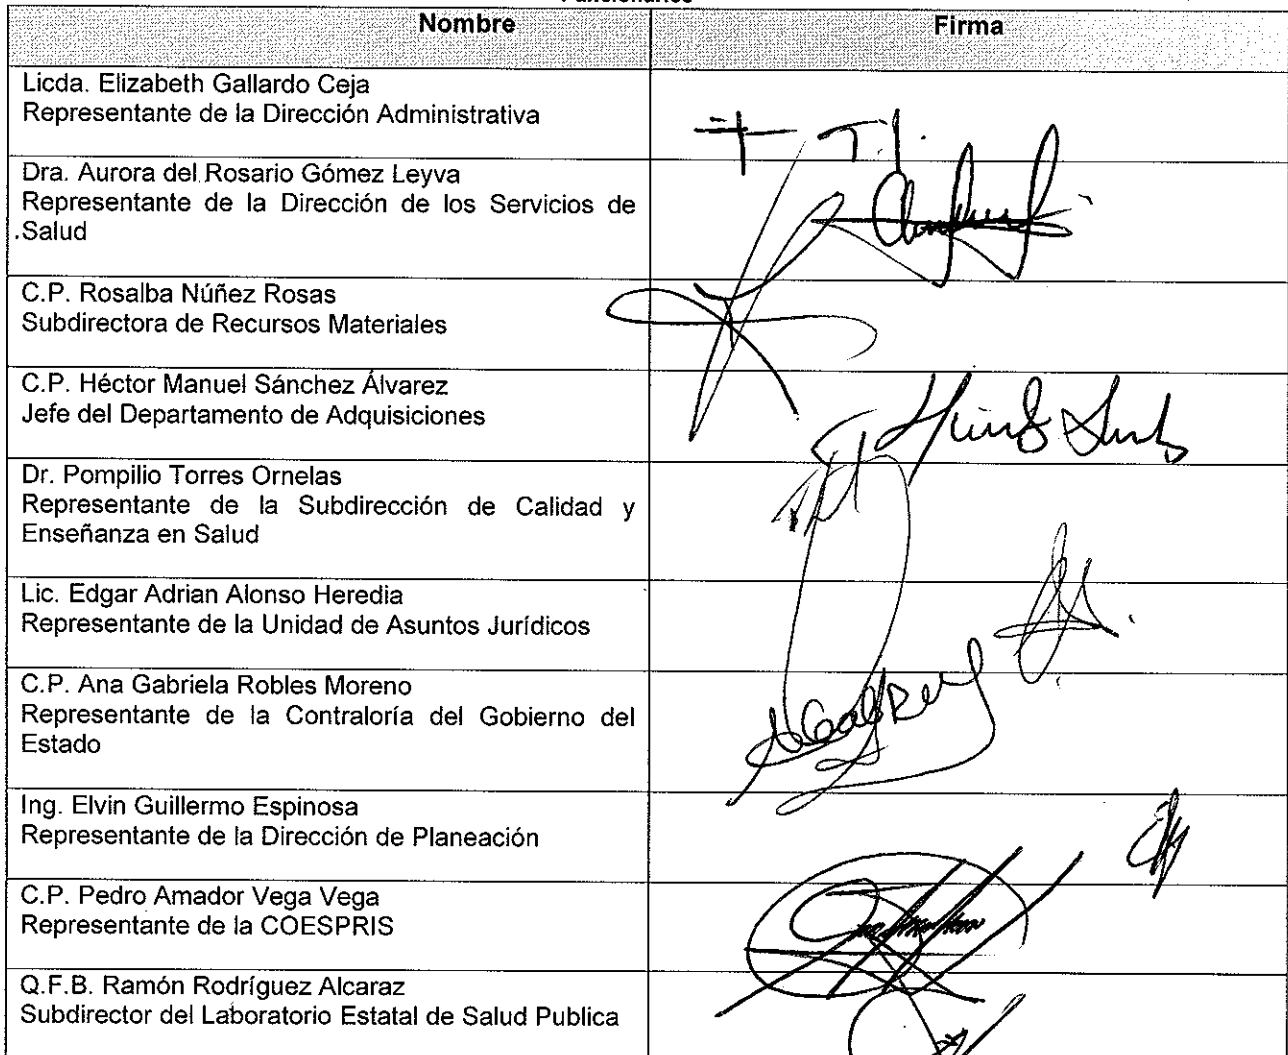 Funcionarios
Nombre
Firma
Licda. Elizabeth Gallardo Ceja
Representante de la Dirección Administrativa
Dra. Aurora del Rosario Gómez Leyva
Representante de la Dirección de los Servicios de
Salud
C.P. Rosalba Núñez Rosas
Subdirectora de Recursos Materiales
C.P. Héctor Manuel Sánchez Álvarez
Jefe del Departamento de Adquisiciones
Dr. Pompilio Torres Ornelas
Representante de la Subdirección de Calidad y
Enseñanza en Salud
Lic. Edgar Adrian Alonso Heredia
Representante de la Unidad de Asuntos Jurídicos
C.P. Ana Gabriela Robles Moreno
Representante de la Contraloría del Gobierno del
Estado
Ing. Elvin Guillermo Espinosa
Representante de la Dirección de Planeación
C.P. Pedro Amador Vega Vega
Representante de la COESPRIS
Q.F.B. Ramón Rodríguez Alcaraz
Subdirector del Laboratorio Estatal de Salud Publica